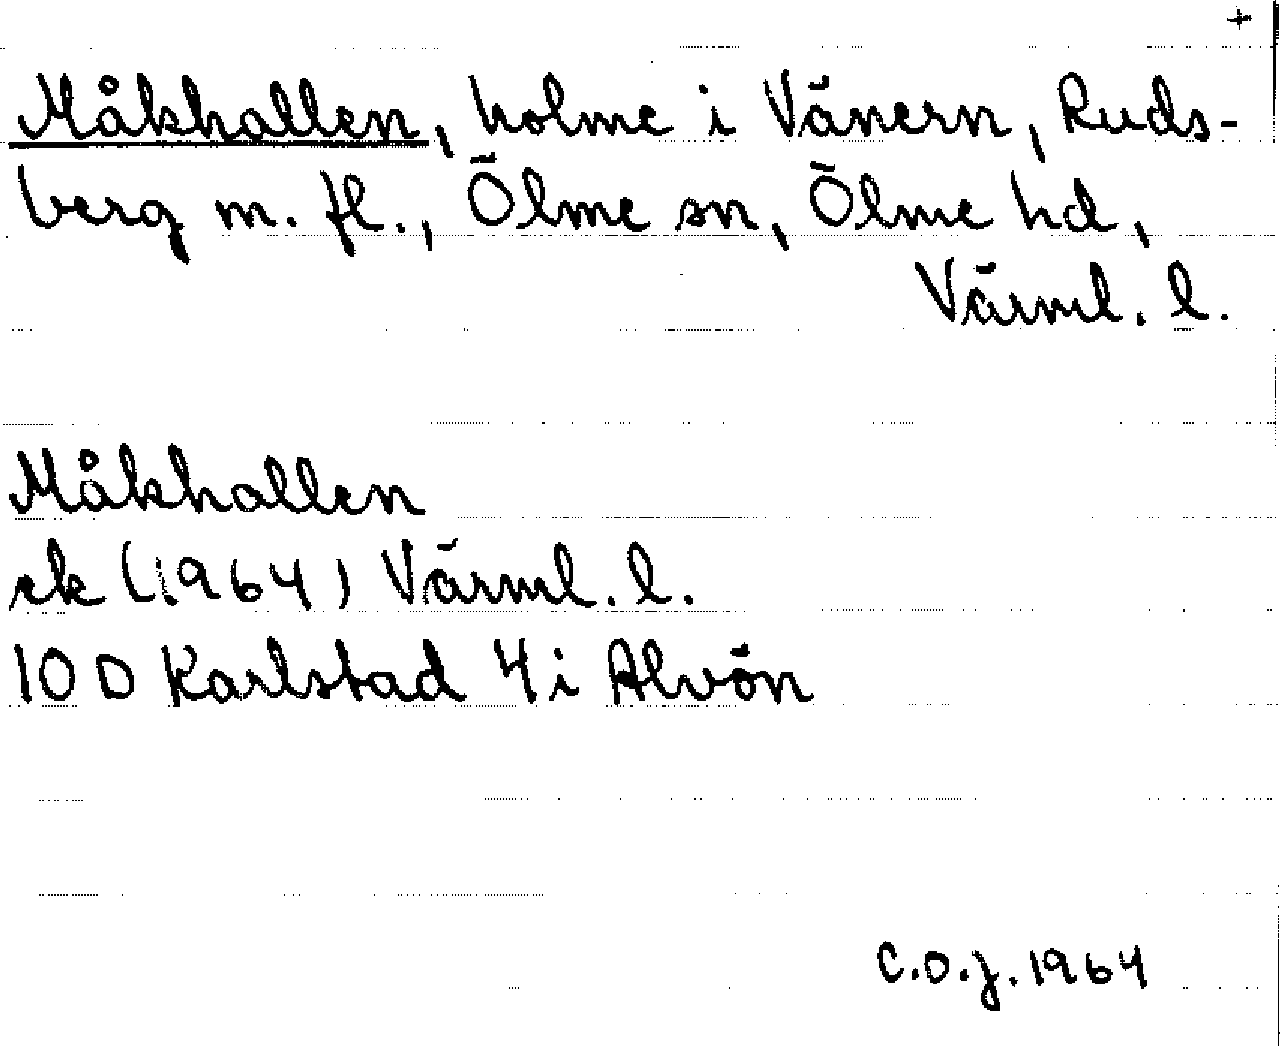 +
Måkhallen, holme i Vänern, Ruds-
berg m. fl., Ölme sn, Ölme hd,
Värml. l.
Måkhallen
ek (1964) Värml. l.
10 D Karlstad 4i Alvön
C.O.J. 1964